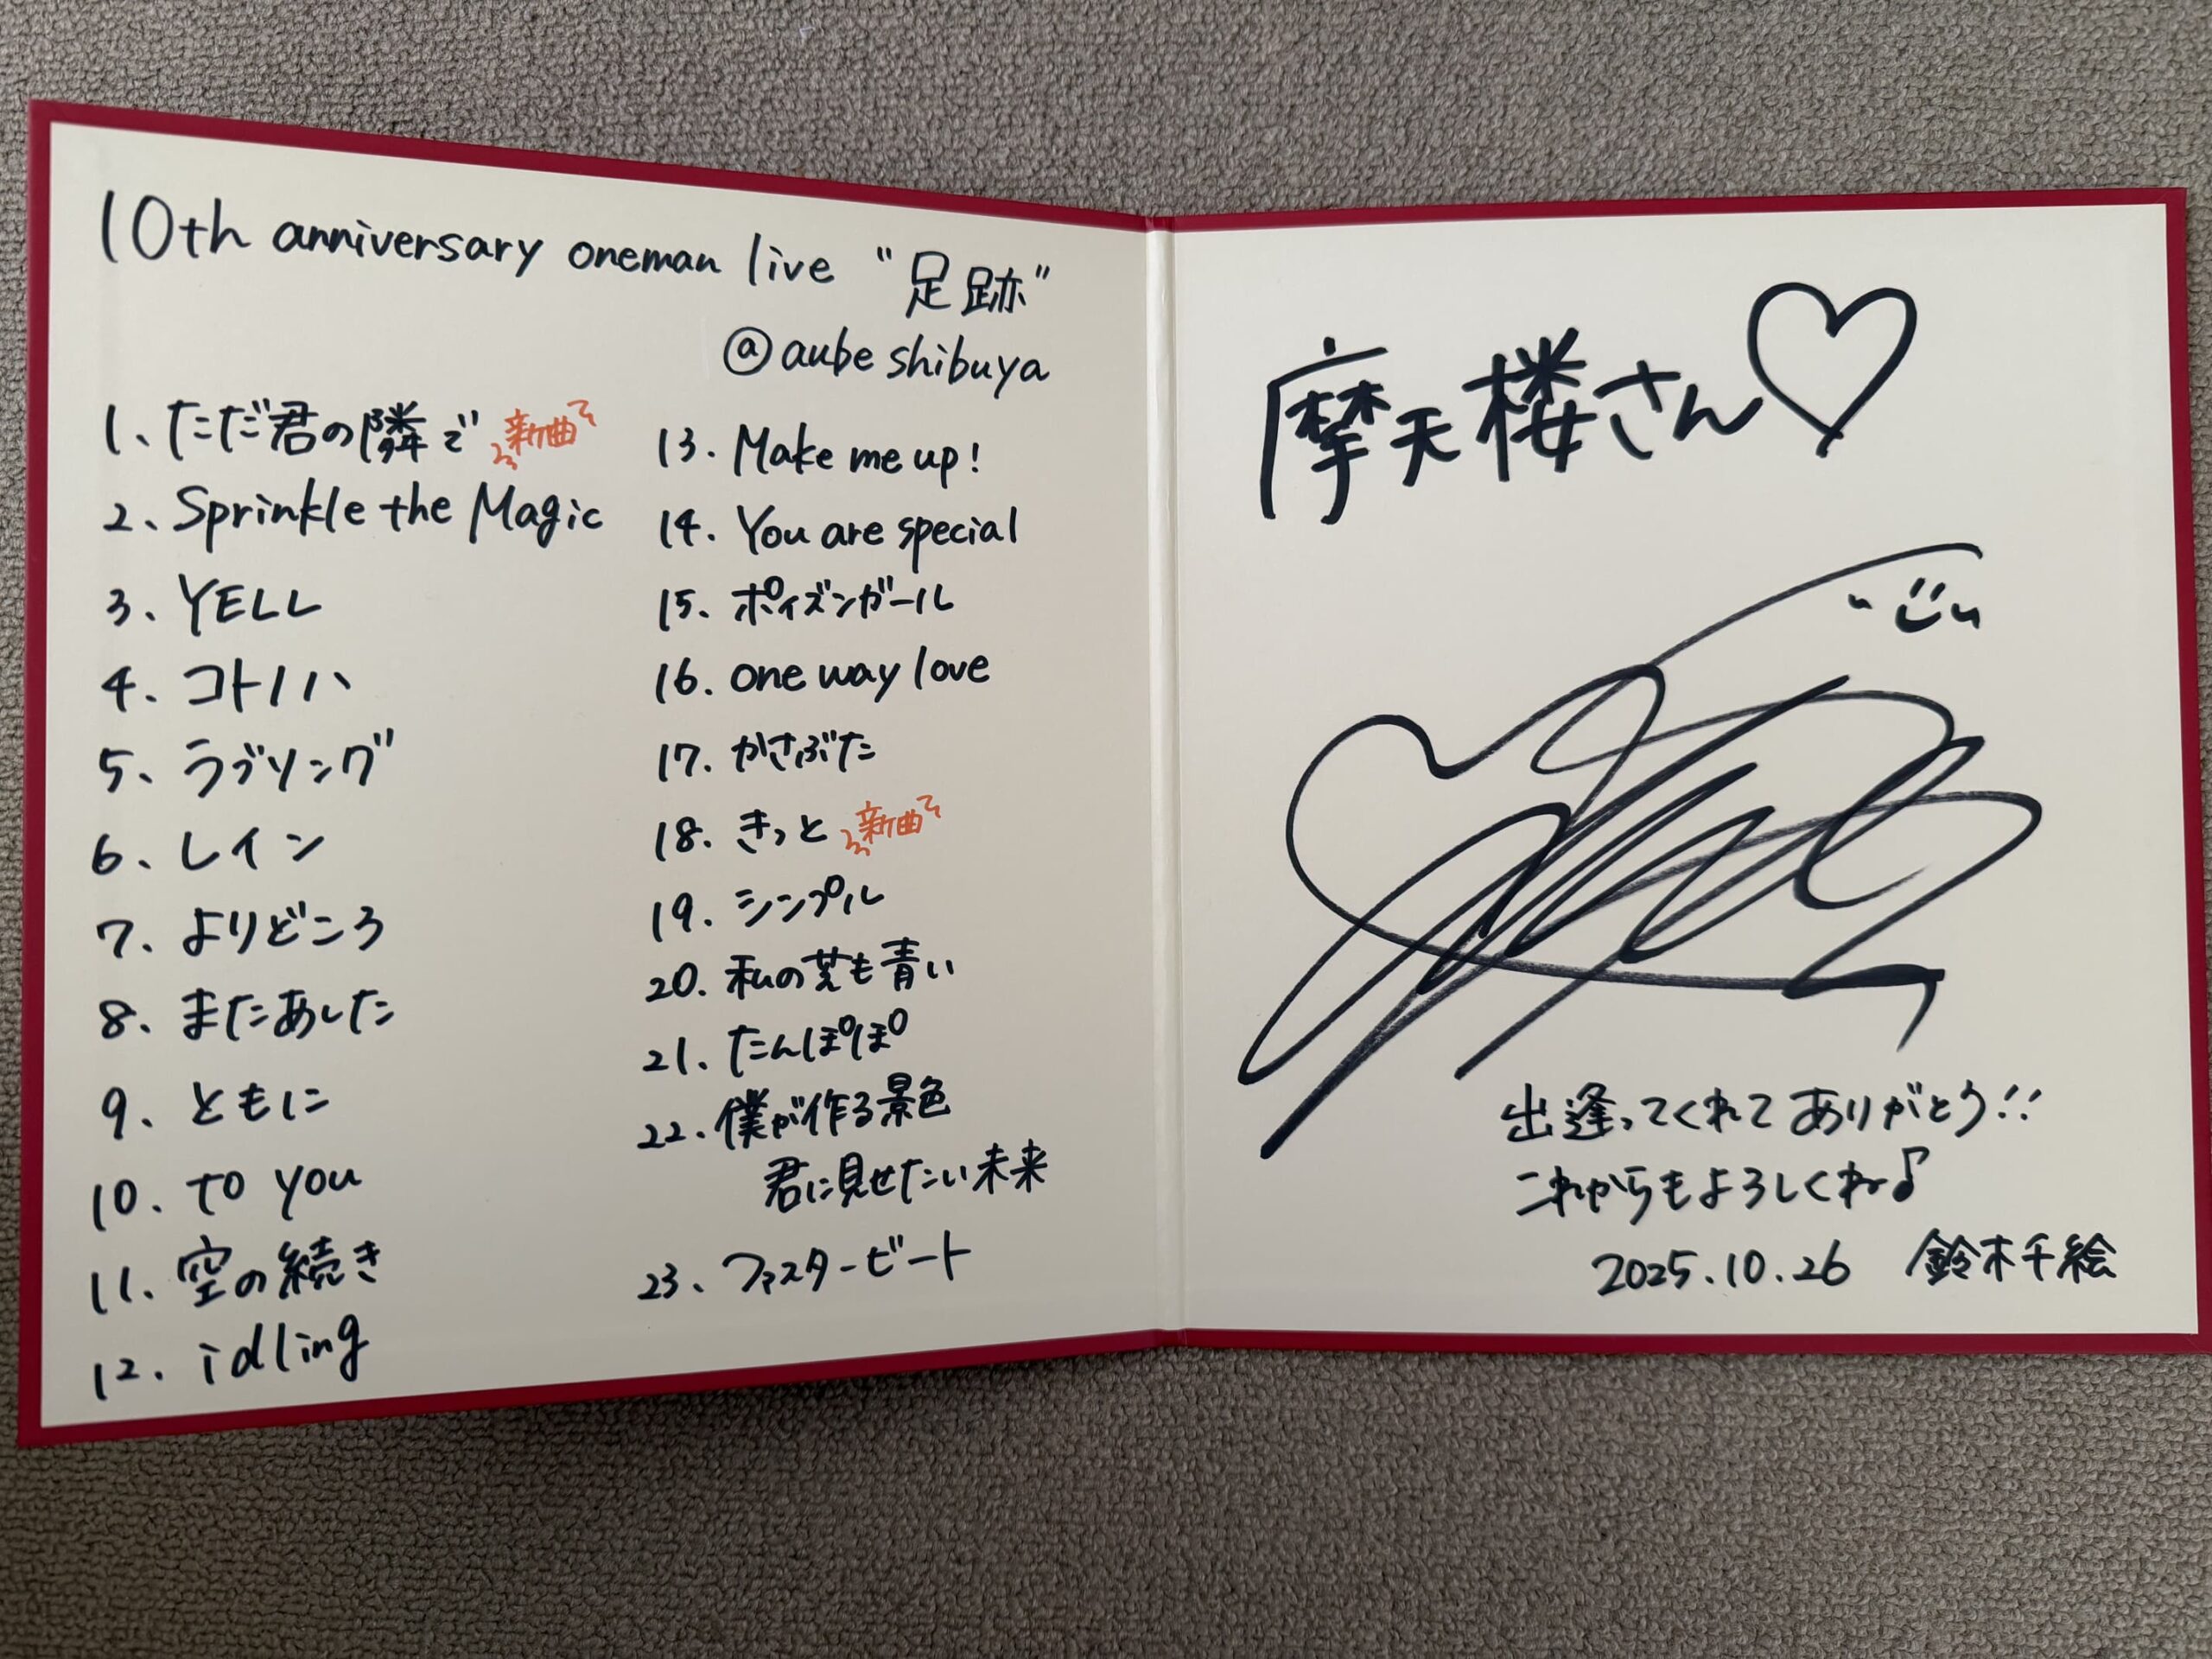 10th anniversary oneman live "足跡"
@aube shibuya
1、ただ君の隣で 新曲
2、Sprinkle the Magic
3、YELL
4、コトノハ
5、ラブソング
6、レイン
7、よりどころ
8、またあした
9、ともに
10、to you
11、空の続き
12、idling
13. Make me up!
14. You are special
15、ポイズンガール
16. one way love
17. かさぶた
18. きっと 新曲
19. シンプル
20. 私の芝も青い
21、たんぽぽ
22. 僕が作る景色
君に見せたい未来
23、ファスタービート
摩天楼さん♡
出逢ってくれてありがとう!!
これからもよろしくね♪
2025.10.26 鈴木千絵